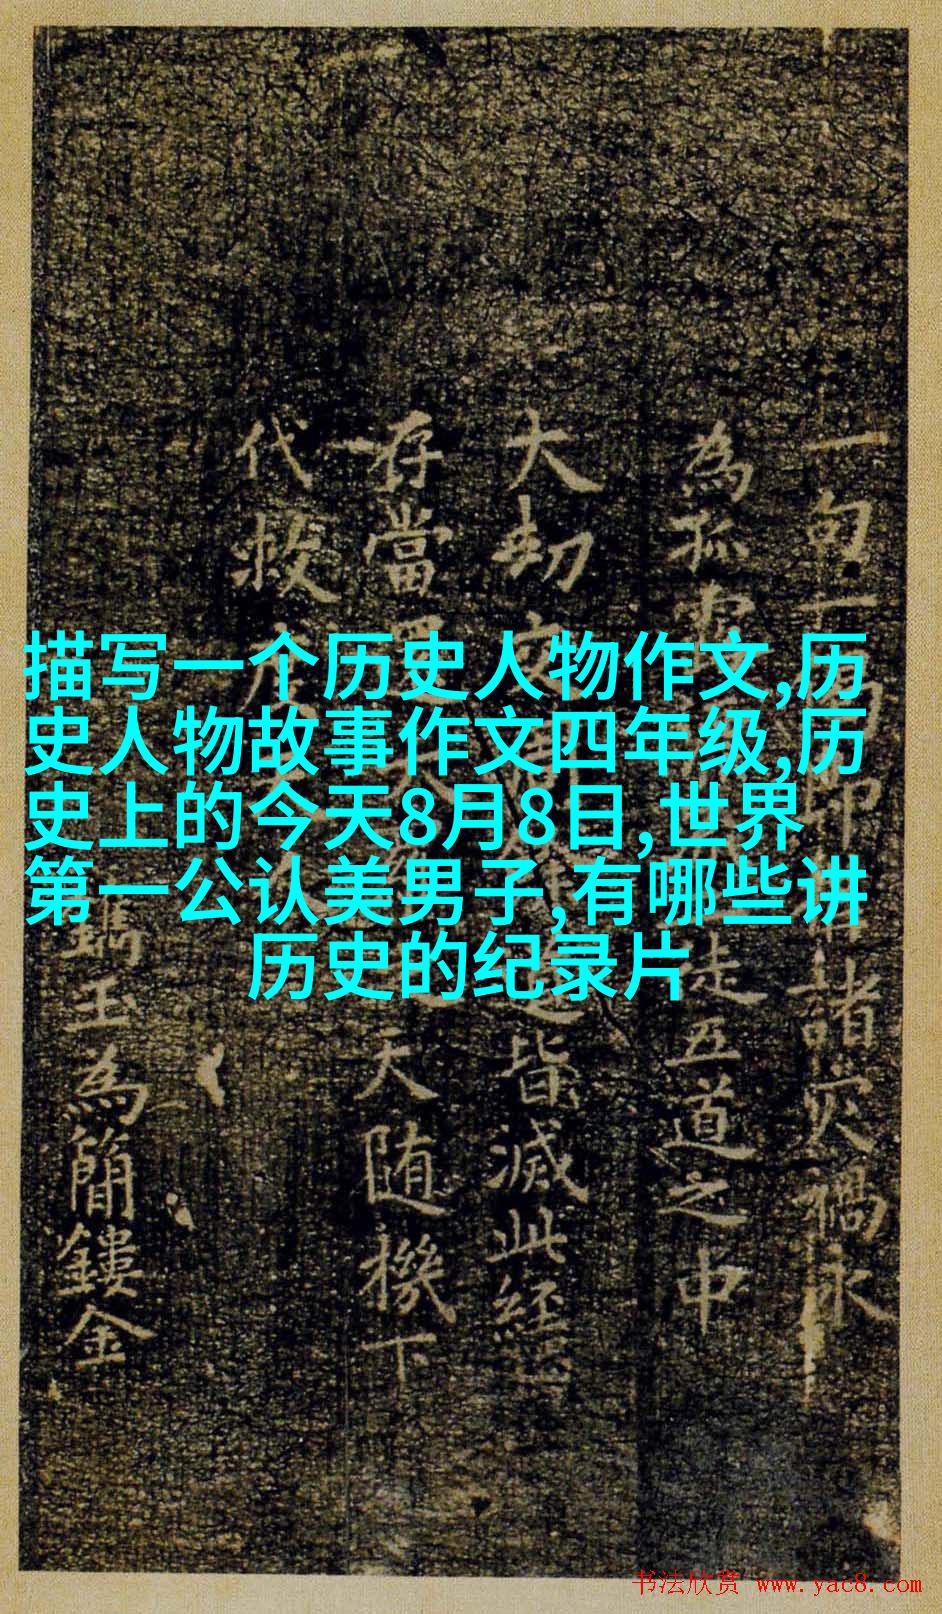 描写一个历史人物作文,历
史人物故事作文四年级,历
史上的今天8月8日,世界
第一公认美男子,有哪些讲
历史的纪录片
一句一
諸灾禍永
為孤
徒五道之中
大劫
皆滅此經
存當
天随機下
代救
玉為簡鏤金
书法欣赏 www.yac8.com